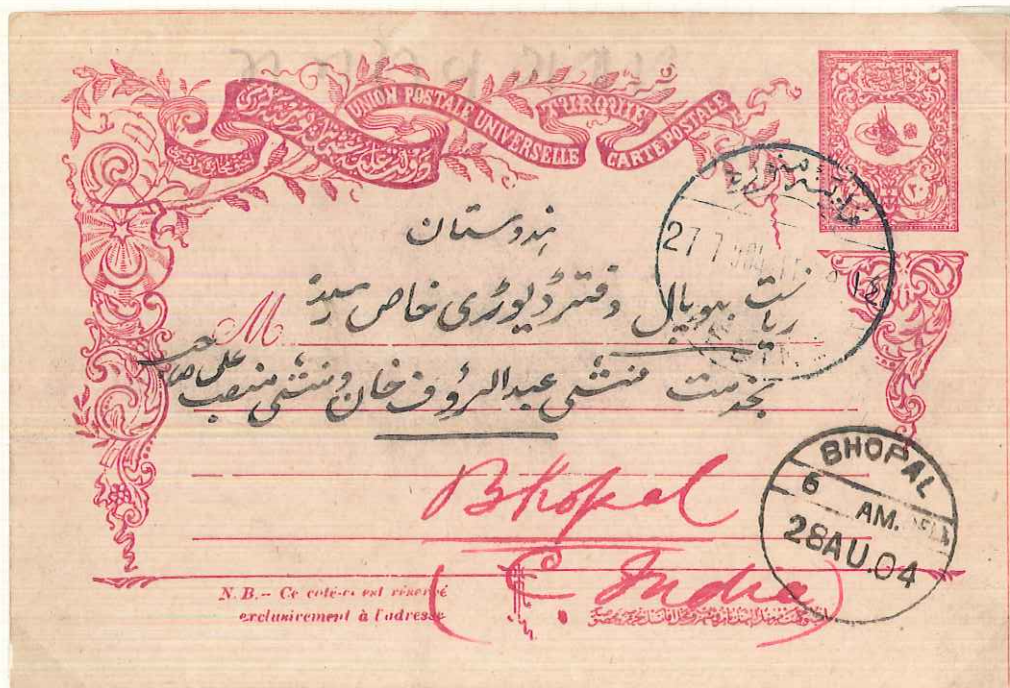 UNION POSTALE UNIVERSELLE
TURQUIE
CARTE POSTALE
٢٠
مدينه منوره
27 7 904
ہندوستان
ریاست بہوپال دفتر ڈیوڑی خاص
M
بخدمت منشی عبدالرؤف خان و منشی منصب علی صاحب
Bhopal
(C. India)
BHOPAL
6 AM.
28AU.04
N.B.— Ce coté-ci est réservé
exclusivement à l'adresse